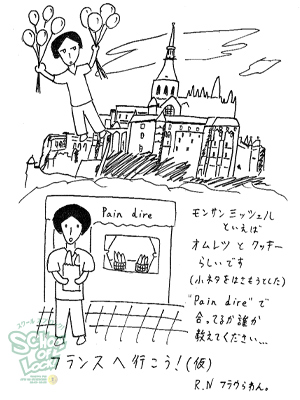 Pain dire
モンサンミッシェル
といえば
オムレツとクッキー
らしいです
(小ネタをはさもうとした)
"Pain dire"で
合ってるか誰か
教えてください…
フランスへ行こう!(仮)
R.N フラウらわん。
SCHOOL OF LOCK!